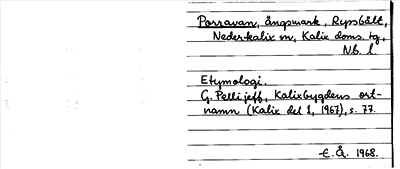 Porravan, ängsmark, Rypsbält,
Nederkalix sn, Kalix doms. tg,
N.b. l.
Etymologi.
G. Pellijeff, Kalixbygdens ort-
namn (Kalix del 1, 1967), s. 77.
E. Å. 1968.